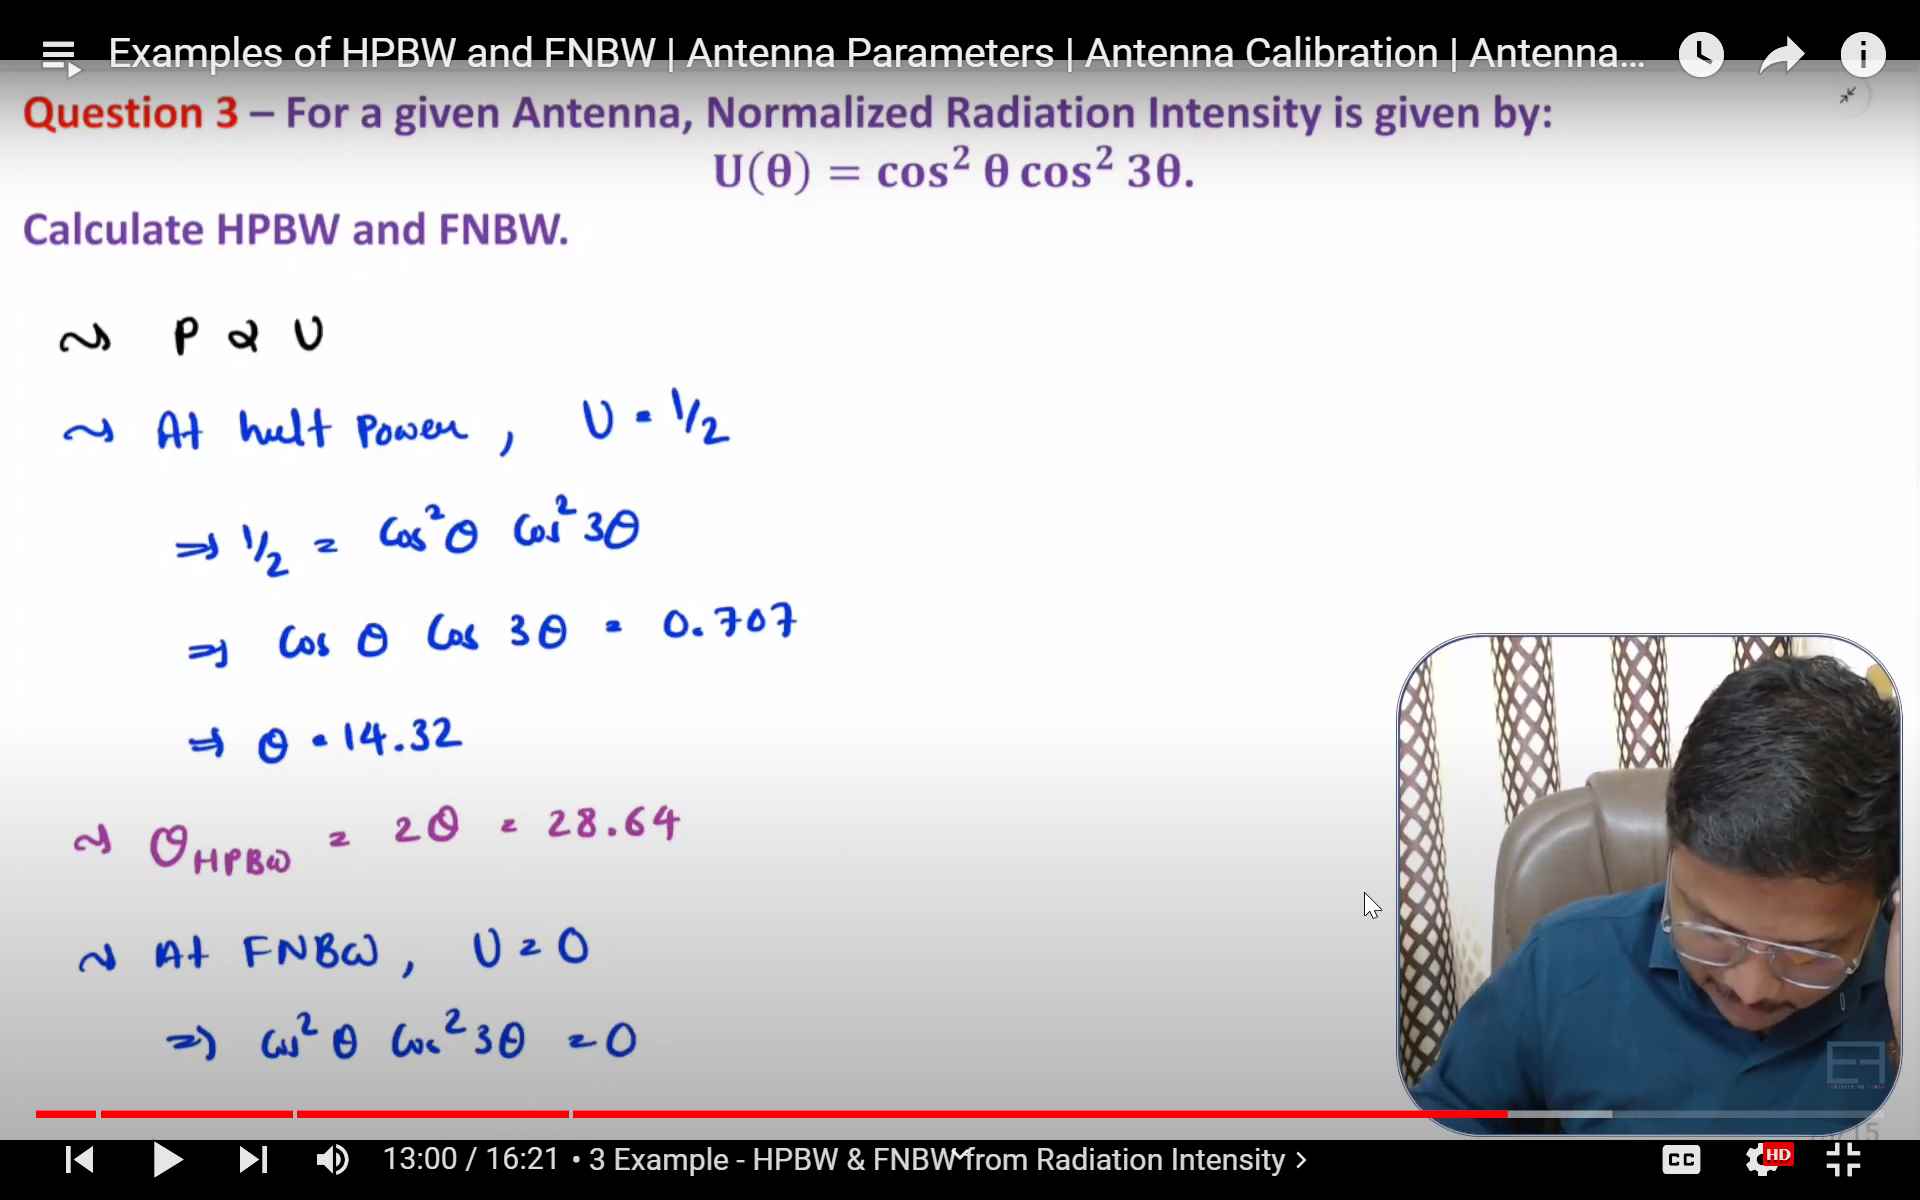 Examples of HPBW and FNBW | Antenna Parameters | Antenna Calibration | Antenna...
Question 3 – For a given Antenna, Normalized Radiation Intensity is given by:
U(θ) = cos² θ cos² 3θ.
Calculate HPBW and FNBW.
~ P α U
~ At half Power, U = 1/2
⇒ 1/2 = Cos² θ Cos² 3θ
⇒ Cos θ Cos 3θ = 0.707
⇒ θ = 14.32
~ θ HPBW = 2θ = 28.64
~ At FNBW, U = 0
⇒ Cos² θ Cos² 3θ = 0
13:00 / 16:21 • 3 Example - HPBW & FNBW from Radiation Intensity >
CC
HD